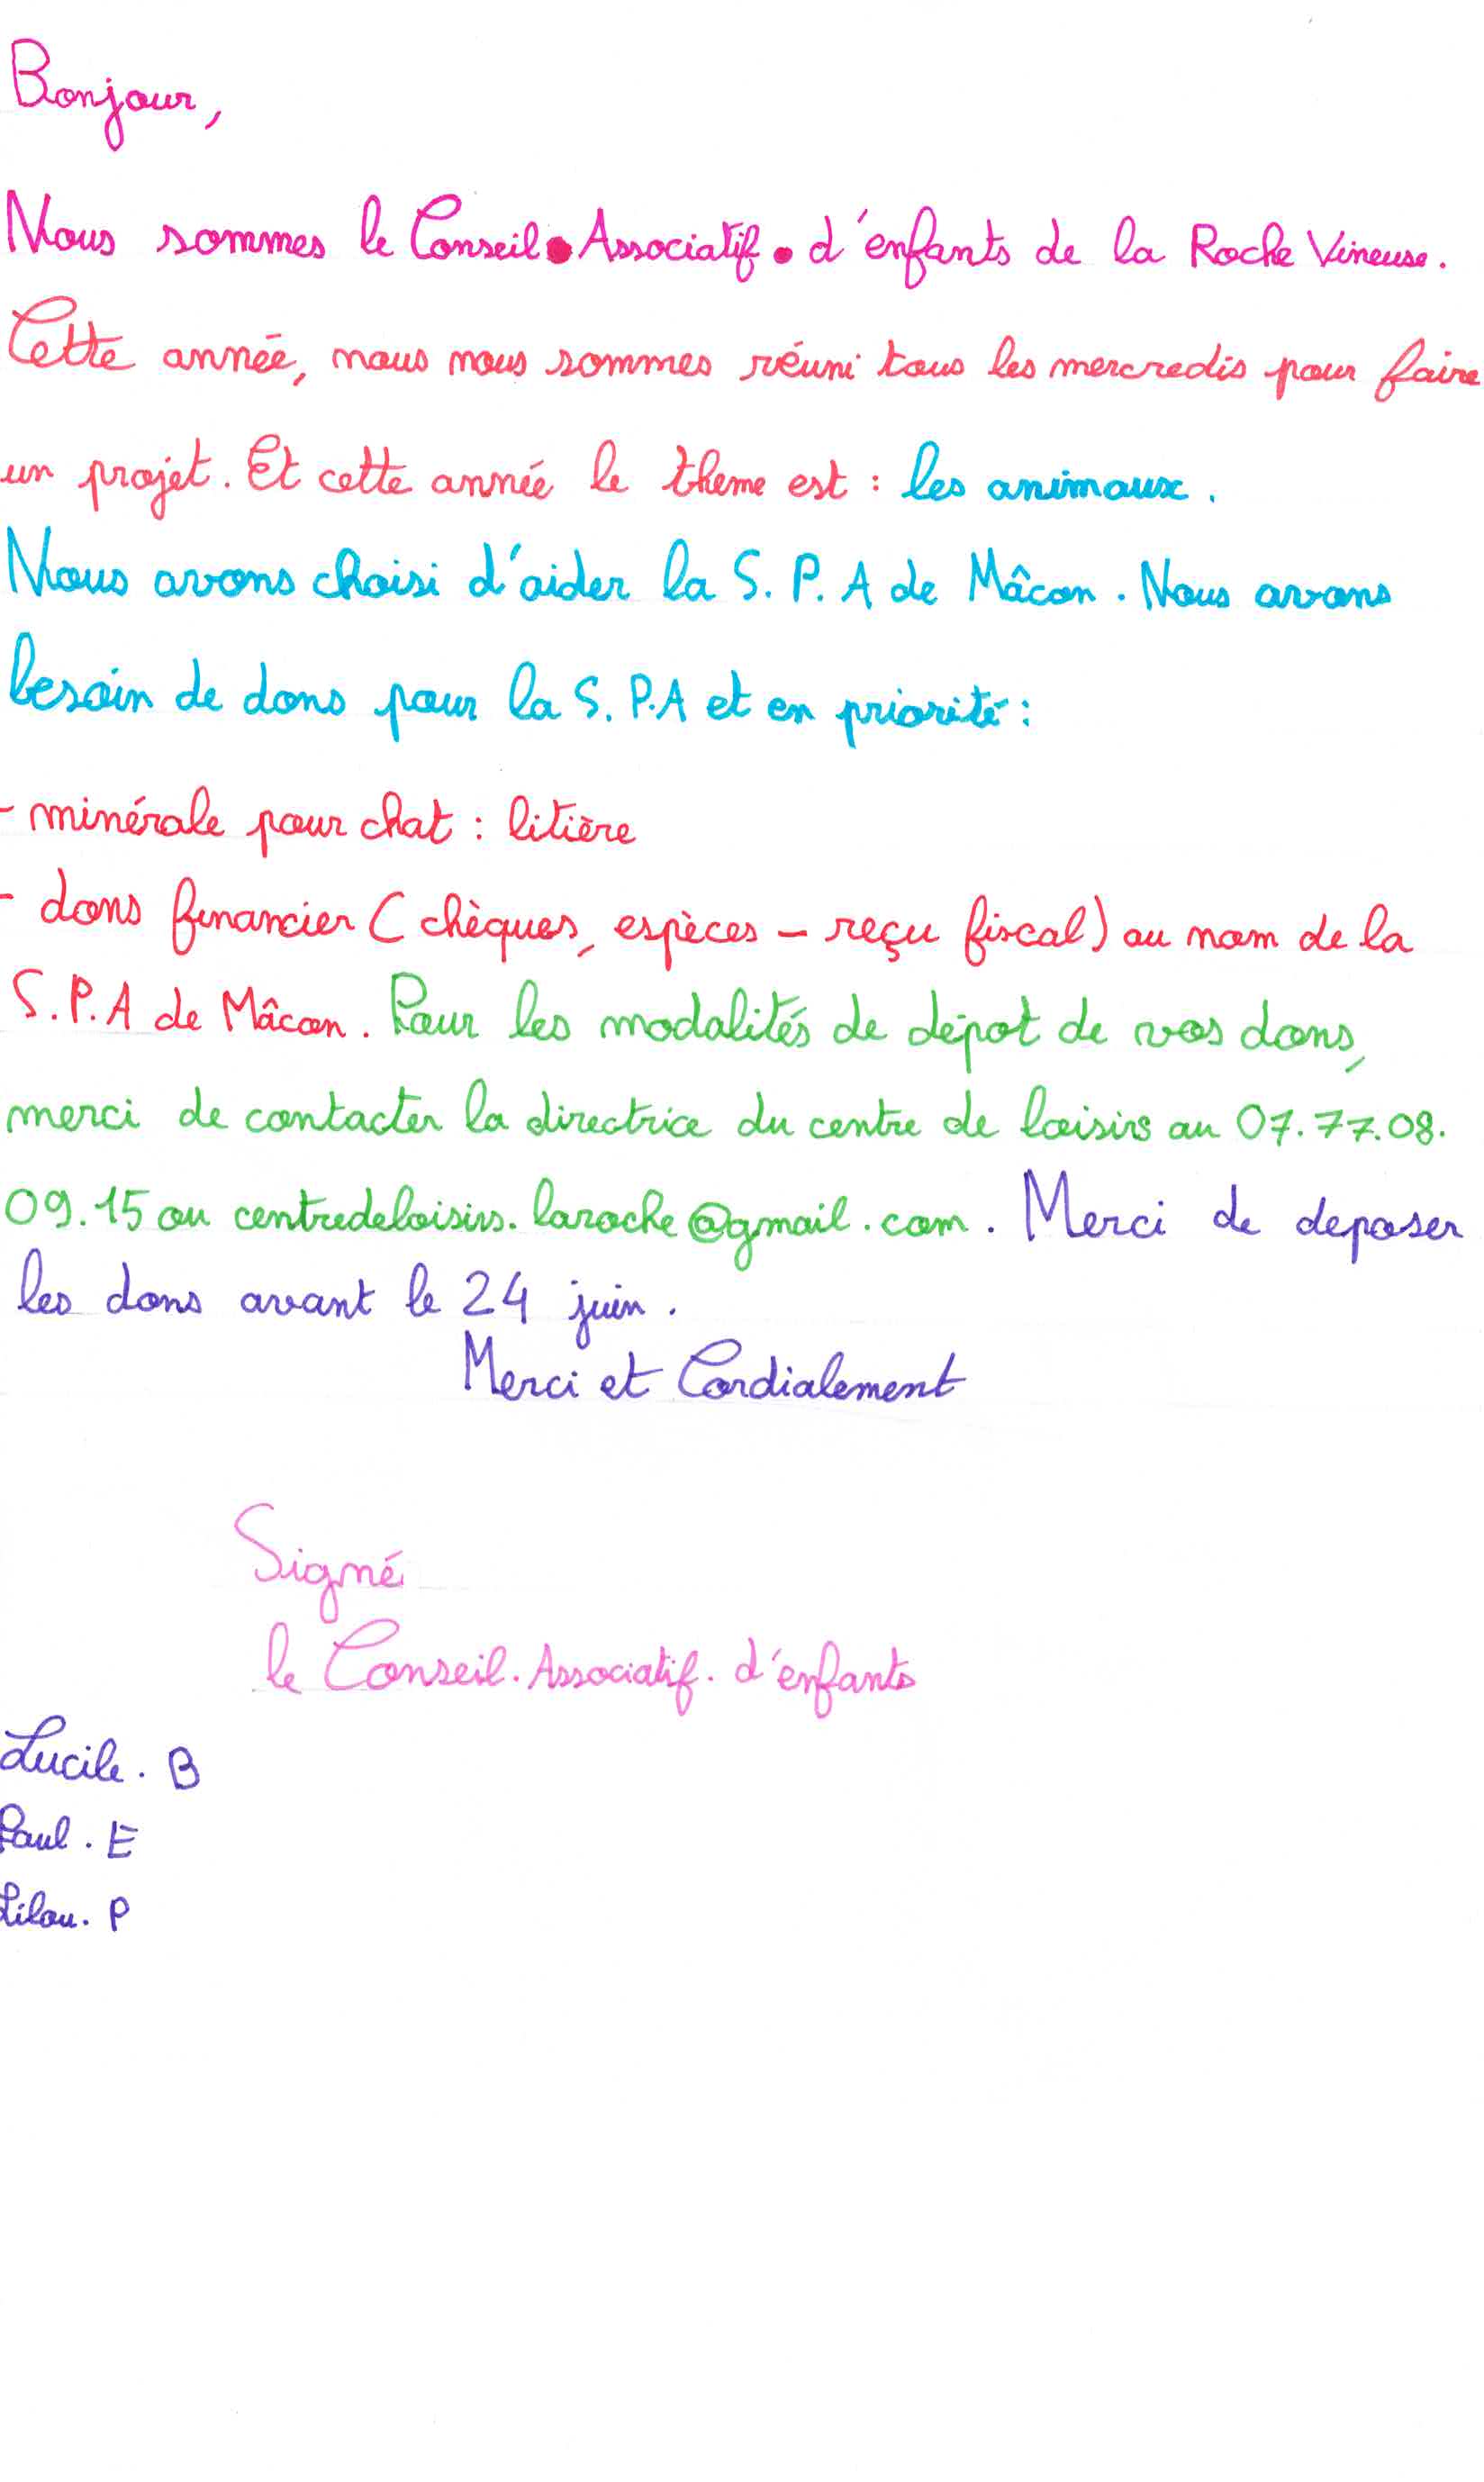 Bonjour,
Nous sommes le Conseil.Associatif.d'enfants de la Roche Vineuse.
Cette année, nous nous sommes réuni tous les mercredis pour faire
un projet. Et cette année le theme est : les animaux.
Nous avons choisi d'aider la S.P.A de Mâcon. Nous avons
besoin de dons pour la S.P.A et en priorité :
- minérale pour chat : litière
- dons financier (chèques, espèces - reçu fiscal) au nom de la
S.P.A de Mâcon. Pour les modalités de dépot de vos dons,
merci de contacter la directrice du centre de loisirs au 07.77.08.
09.15 ou centredeloisirs.laroche@gmail.com. Merci de deposer
les dons avant le 24 juin.
Merci et Cordialement
Signé
le Conseil.Associatif.d'enfants
Lucile.B
Paul.E
Lilou.P